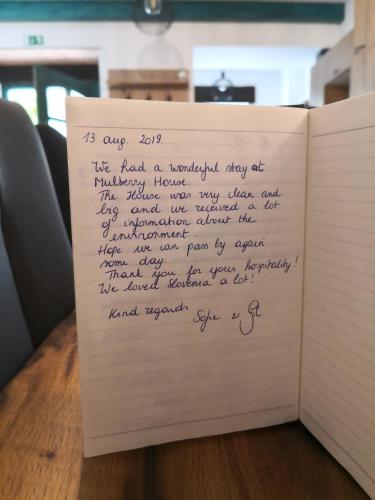 13 aug. 2019
We had a wonderful stay at
Mulberry House.
The House was very clean and
big and we received a lot
of information about the
environment.
Hope we can pass by again
some day.
Thank you for your hospitality!
We loved Slovenia a lot!
Kind regards
Sofie &